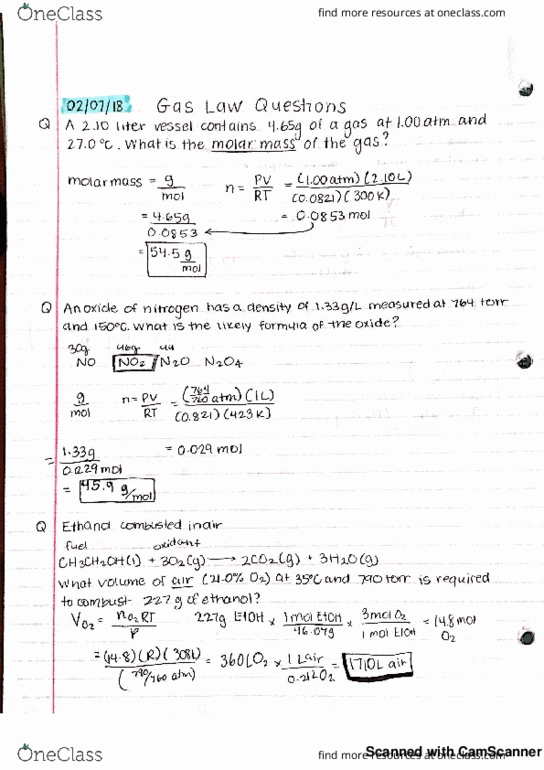 OneClass
find more resources at oneclass.com
02/07/18 Gas Law Questions
Q A 2.10 liter vessel contains 4.65g of a gas at 1.00 atm and
27.0 °C. What is the molar mass of the gas?
molar mass = g/mol n = PV/RT = (1.00 atm)(2.10L)/(0.0821)(300K)
= 4.65g/0.0853 = 0.0853 mol
= 54.5 g/mol
Q An oxide of nitrogen has a density of 1.33g/L measured at 764 torr
and 150°C. What is the likely formula of the oxide?
30g 46g 44
NO NO2 N2O N2O4
g/mol n = PV/RT = (764/760 atm)(1L)/(0.821)(423K)
= 1.33g/0.029 mol = 0.029 mol
= 45.9 g/mol
Q Ethanol combusted in air
fuel oxidant
CH3CH2OH(l) + 3O2(g) → 2CO2(g) + 3H2O(g)
What volume of air (21.0% O2) at 35°C and 790 torr is required
to combust 227 g of ethanol?
VO2 = nO2RT/P 227g EtOH × 1 mol EtOH/46.07g × 3 mol O2/1 mol EtOH = 14.8 mol O2
= (14.8)(R)(308K)/(790/760 atm) = 360LO2 × 1 L air/0.21LO2 = 1710L air
Scanned with CamScanner
OneClass
find more resources at oneclass.com